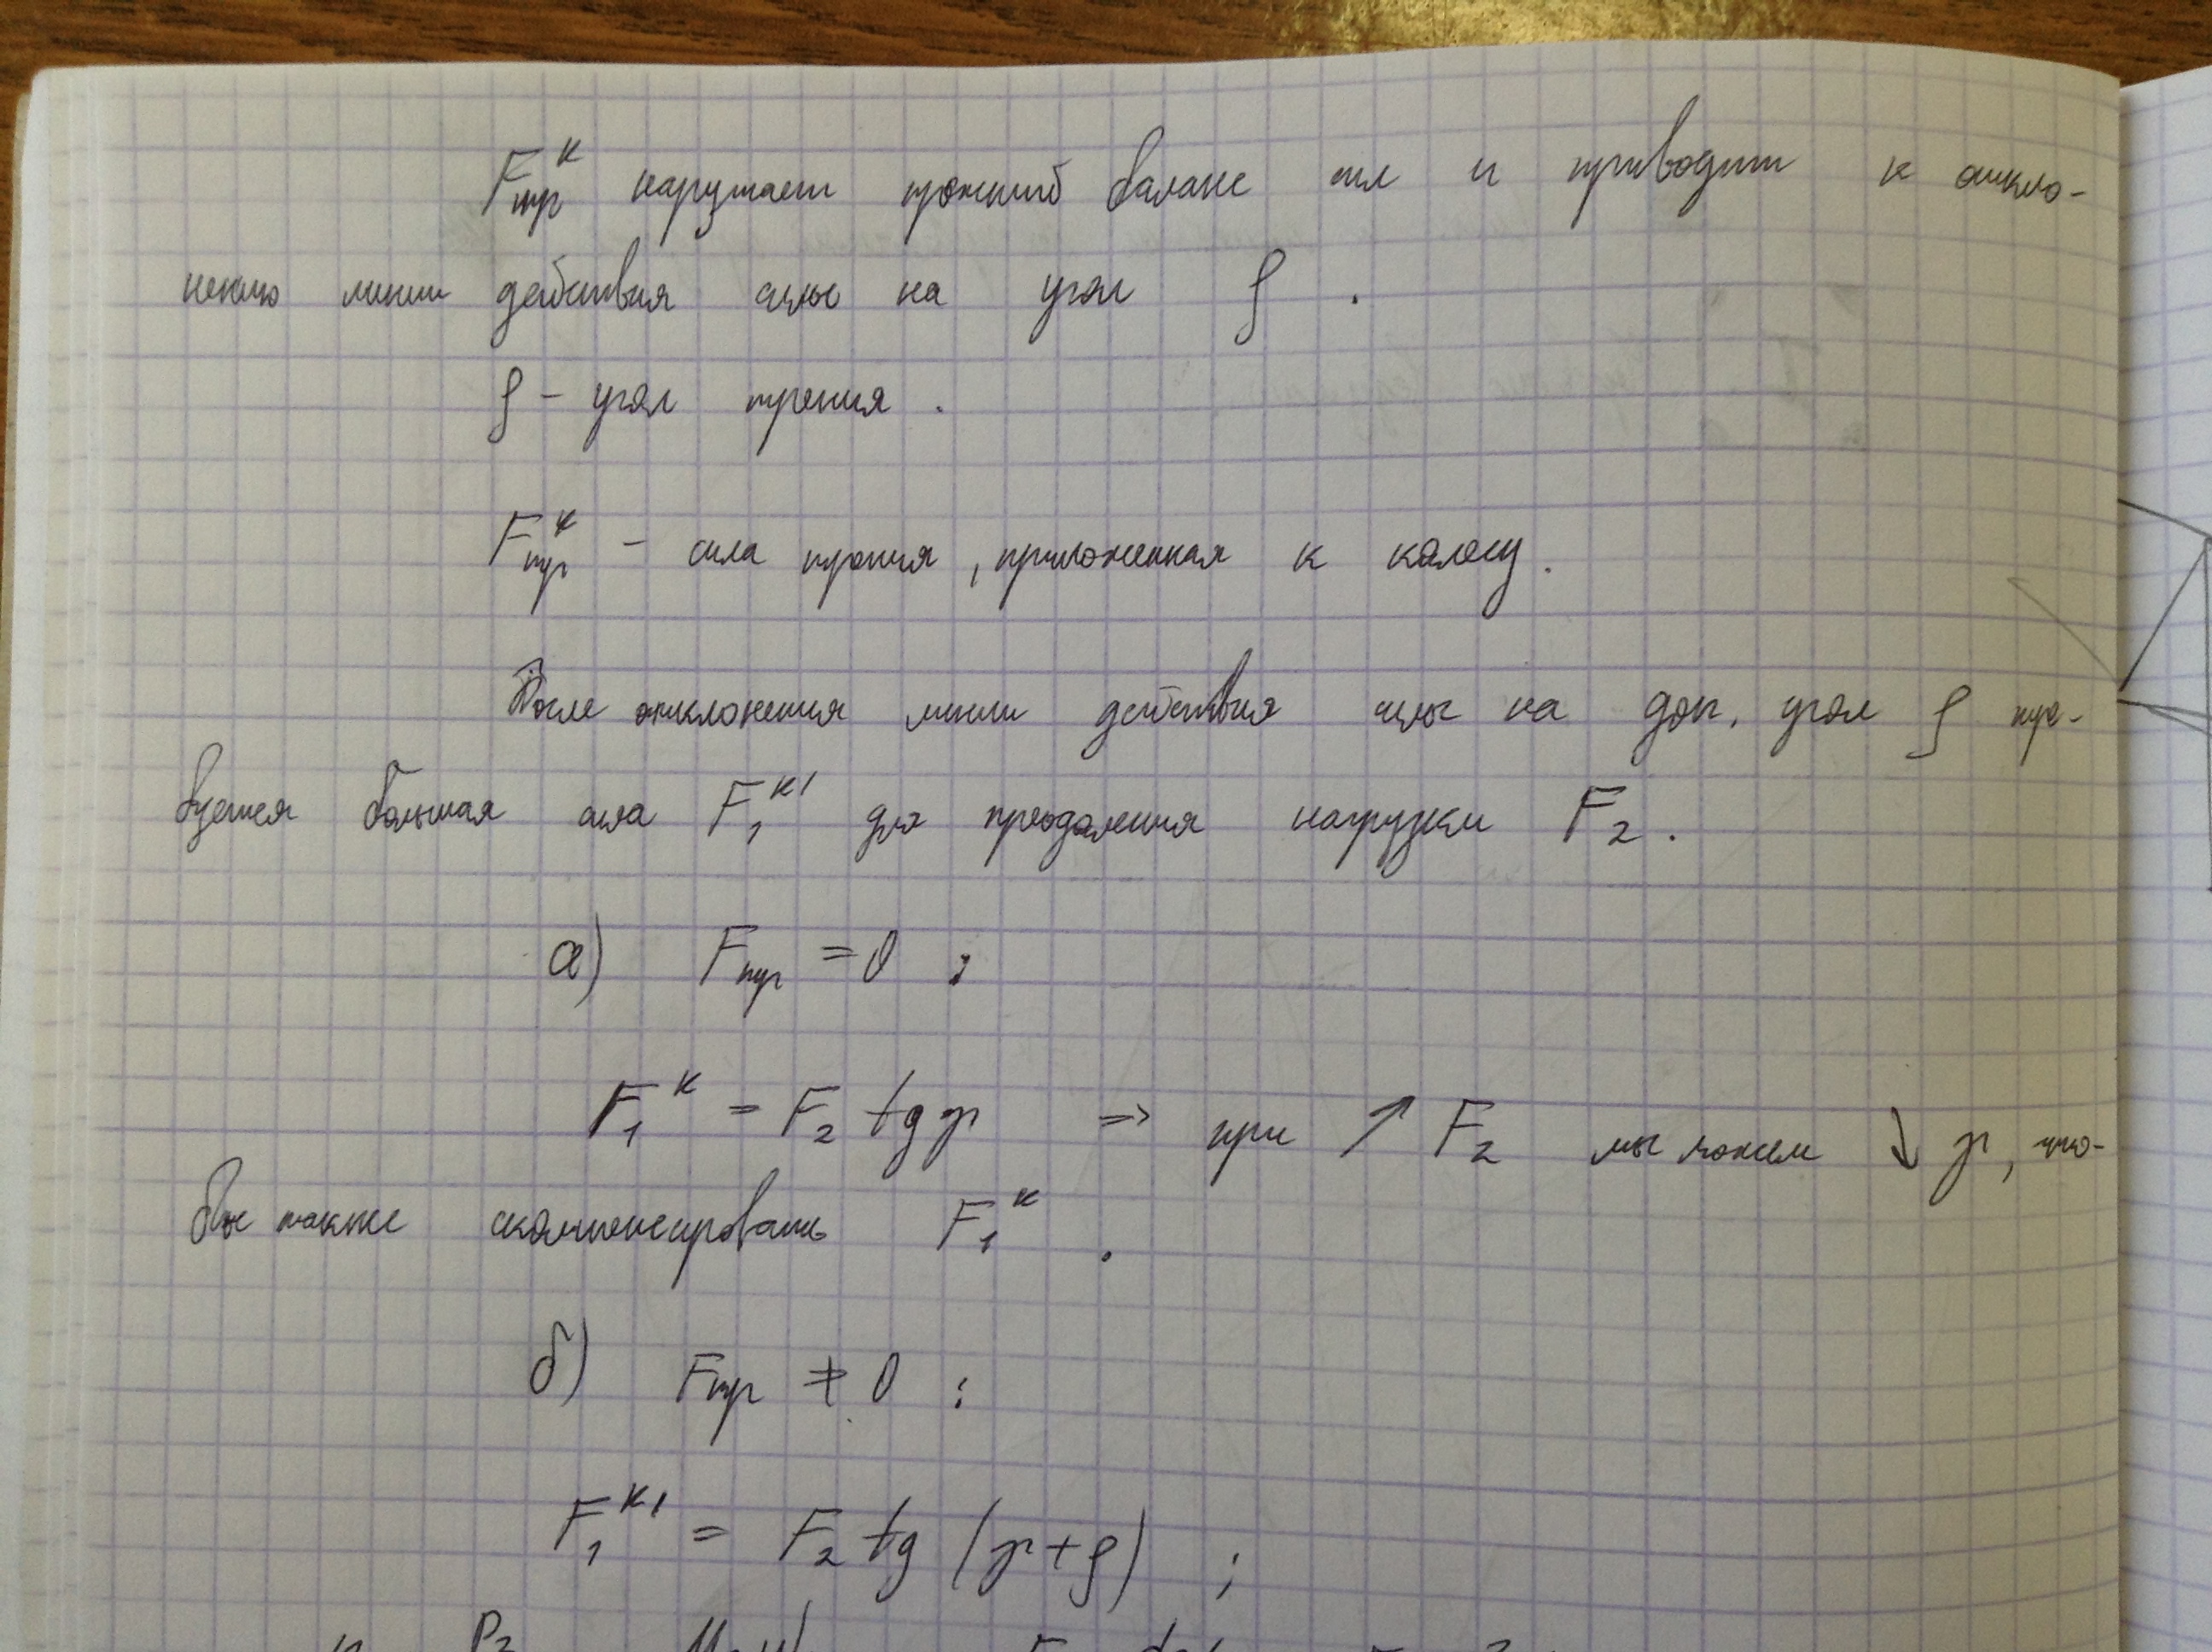 Fтр^к нарушает прежний баланс сил и приводит к откло-
нению линии действия силы на угол ρ .
ρ – угол трения .
Fтр^к – сила трения , приложенная к колесу .
После отклонения линии действия силы на доп. угол ρ тре-
буется большая сила F₁^к' для преодоления нагрузки F₂ .
а) Fтр = 0 :
F₁^к = F₂ tg γ => при ↑ F₂ мы можем ↓ γ , что-
бы также скомпенсировать F₁^к .
б) Fтр ≠ 0 :
F₁^к' = F₂ tg (γ + ρ) ;